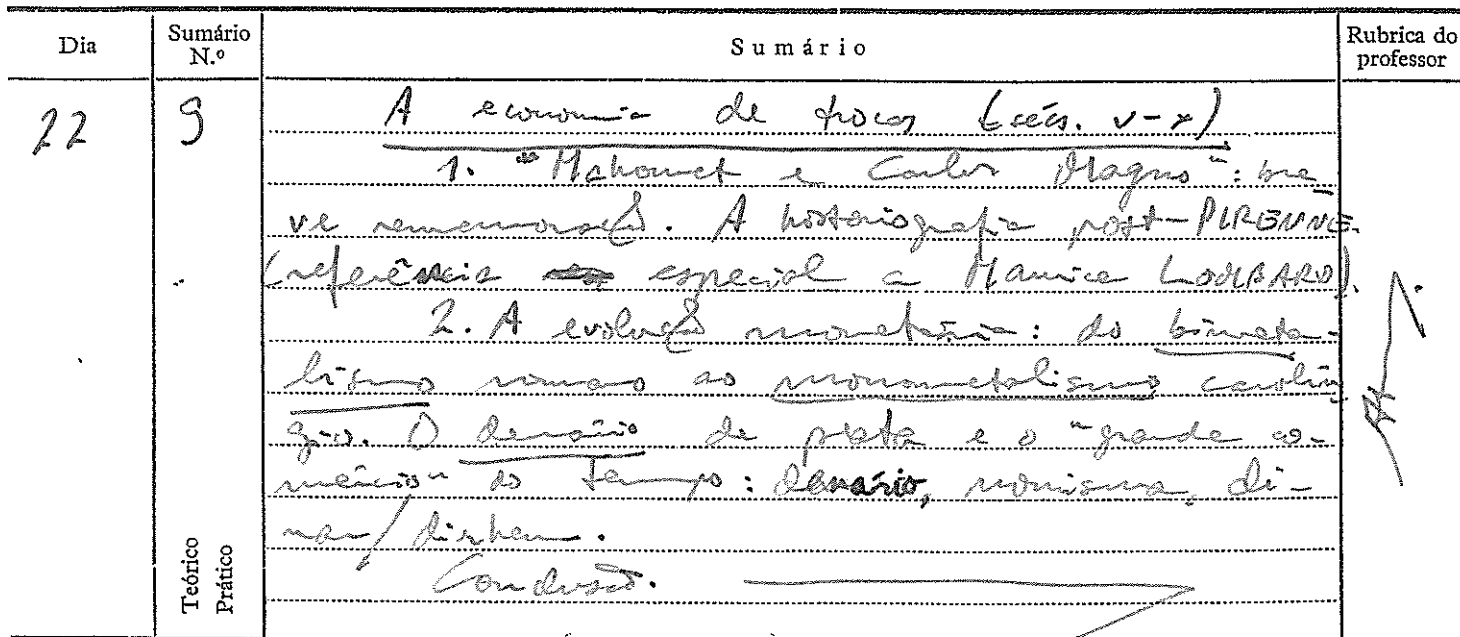 Dia
Sumário N.º
Sumário
Rubrica do professor
22
9
A economia de trocas (sécs. V-X)
1. "Mahomet e Carlos Magno": bre-
ve rememoração. A historiografia post-PIRENNE.
(referência especial a Maurice LOMBARD).
2. A evolução monetária: do bimeta-
lismo romano ao monometalismo carolín-
gio. O denário de prata e o "grande co-
mércio" do tempo: denário, nomisma, di-
nar/dirhem.
Conclusão.
Teórico
Prático